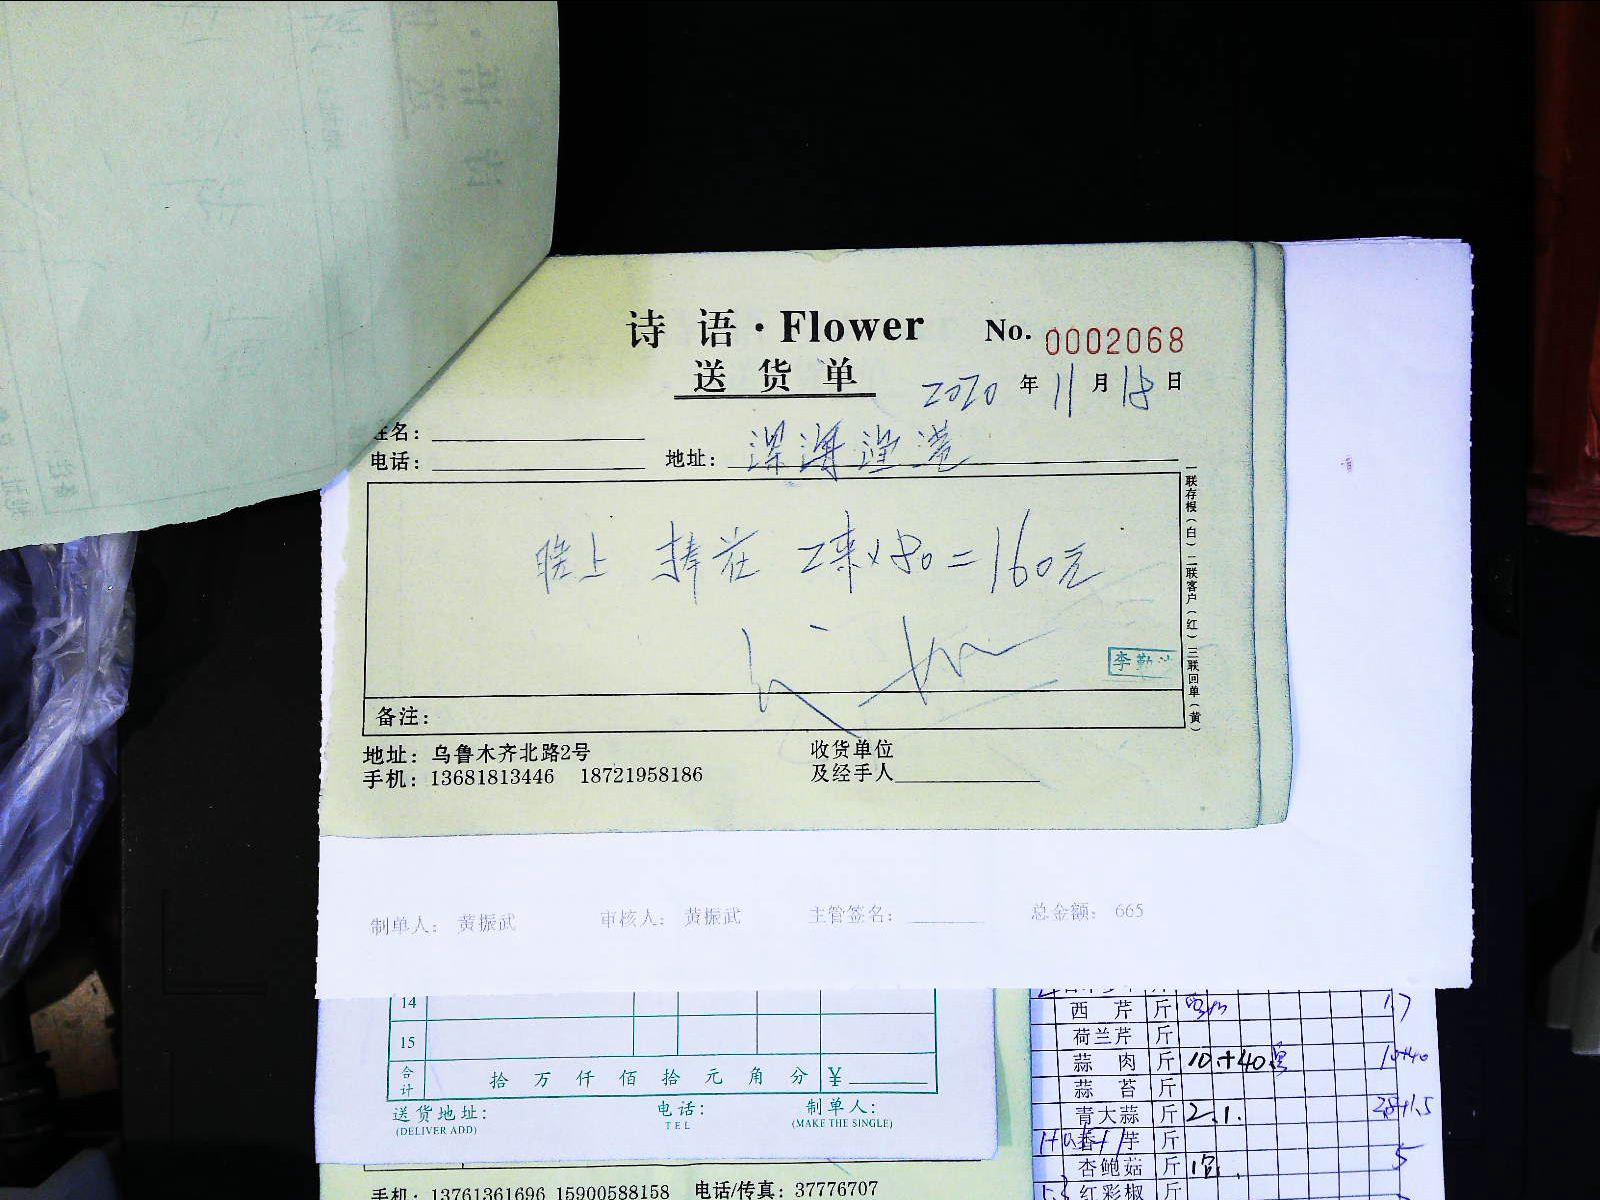 诗 语·Flower No. 0002068
送 货 单 2020 年 11 月 18 日
姓名：
电话： 地址： 深海渔港
晚上 捧花 2束×80=160元
李勤
备注：
一联存根（白）二联客户（红）三联回单（黄）
地址：乌鲁木齐北路2号 收货单位
手机：13681813446 18721958186 及经手人
制单人： 黄振武 审核人： 黄振武 主管签名： 总金额： 665
14
15
合计 拾 万 仟 佰 拾 元 角 分 ¥
送货地址： 电话： 制单人：
(DELIVER ADD) TEL (MAKE THE SINGLE)
手机：13761361696 15900588158 电话/传真：37776707
西 芹 斤 17
荷兰芹 斤
蒜 肉 斤 10+40 10+40
蒜 苔 斤
青大蒜 斤 2.1. 28+1.5
香 芋 斤
杏鲍菇 斤 5
红彩椒 斤